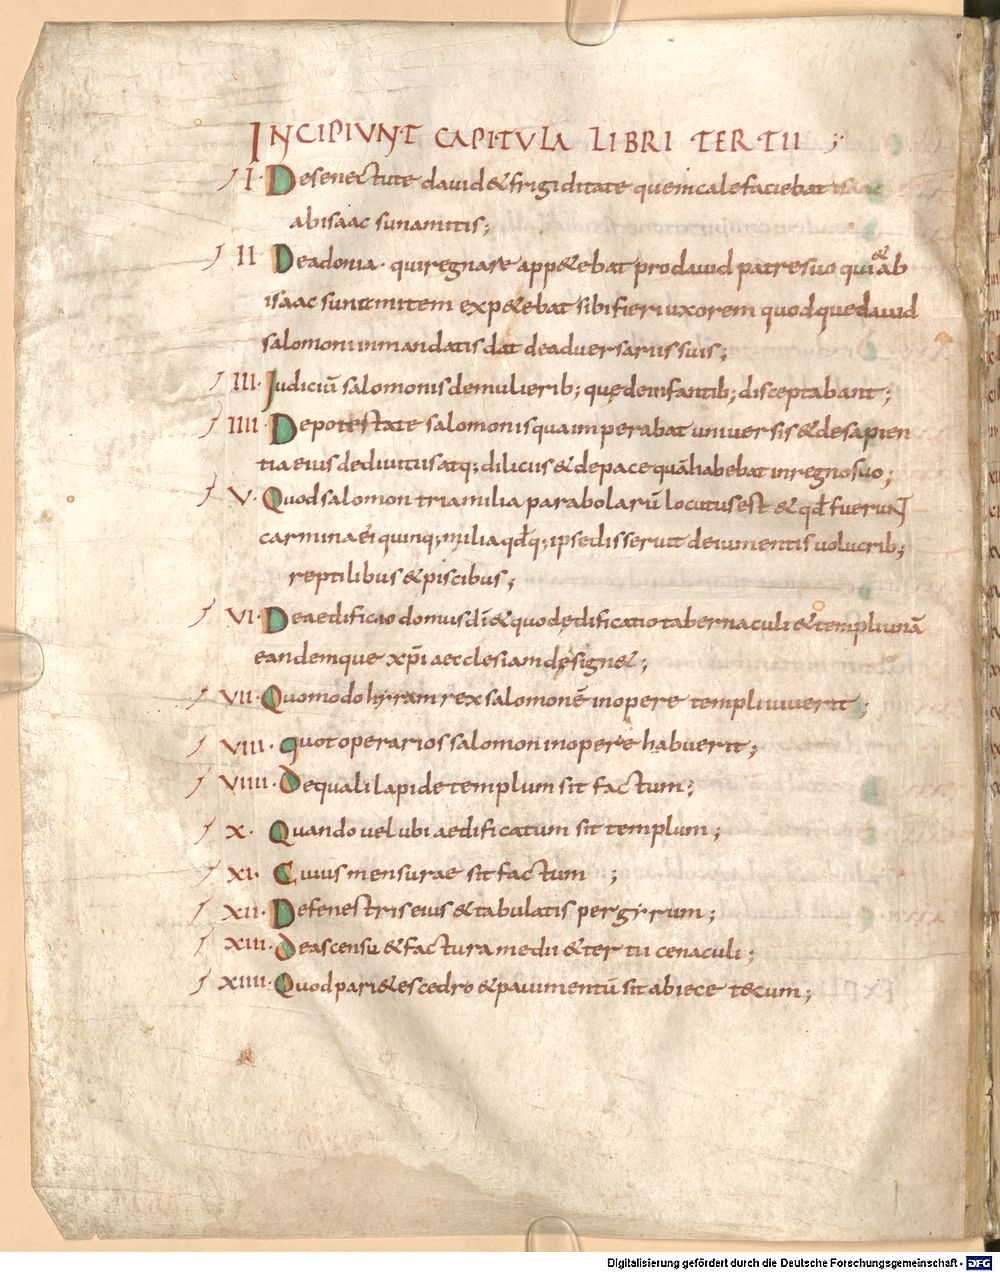 INCIPIUNT CAPITULA LIBRI TERTII ;
I· De senectute dauid & frigiditate quem calefaciebat
abisaac sunamitis;
II De adonia· qui regnare app&ebat pro dauid patre suo qui & ab
isaac sunamitem exp&ebat sibi fieri uxorem quodque dauid
salomoni in mandatis dat de aduersariis suis;
III· Iudiciū salomonis de mulierib; quę de infantib; disceptabant;
IIII· De potestate salomonis qua imperabat uniuersis & de sapien
tia eius de diuitiis atq; diliciis & de pace quā habebat in regno suo;
V· Quod salomon tria milia parabolarū locutus est & qđ fuerunt
carmina ei quinq; milia qđq; ipse disseruit de iumentis uolucrib;
reptilibus & piscibus;
VI· De aedificaō domus dī & quod ędificatio tabernaculi & templi unā
eandemque xp̄i aecclesiam design&;
VII· Quomodo hyram rex salomonē in opere templi iuuerit;
VIII· Quot operarios salomon in opere habuerit;
VIIII· De quali lapide templum sit factum;
X· Quando uel ubi aedificatum sit templum;
XI· Cuius mensurae sit factum ;
XII· De fenestris eius & tabulatis per gyrum;
XIII· De ascensu & factura medii & tertii cenaculi;
XIIII· Quod pari&es cedro & pauimentū sit abiete tectum;
Digitalisierung gefördert durch die Deutsche Forschungsgemeinschaft - DFG